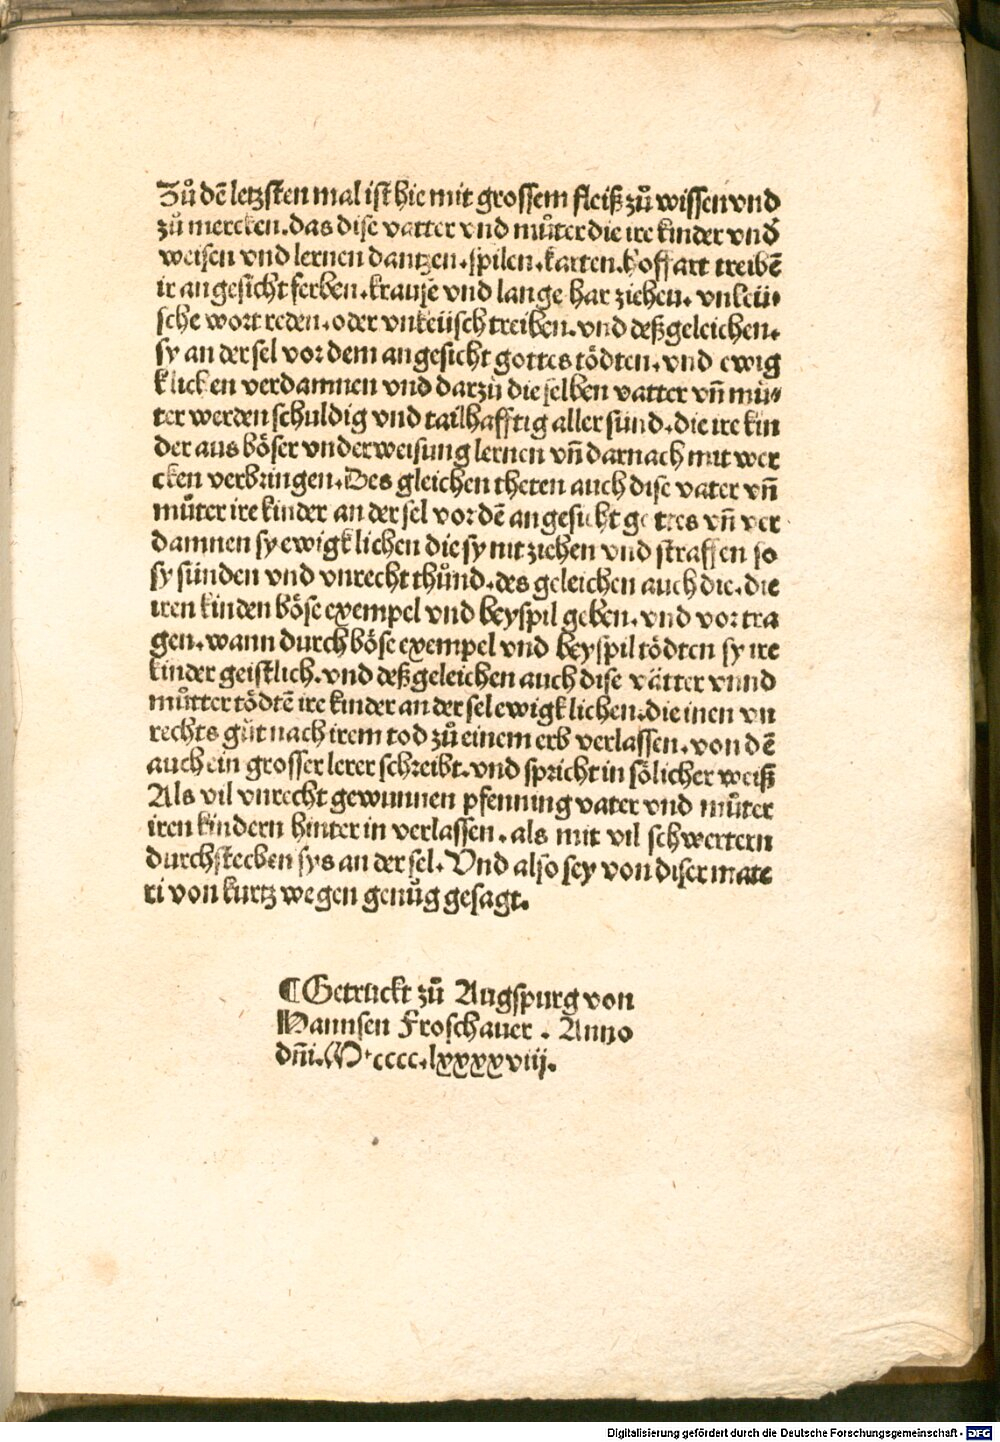 Zů dē letzsten mal ist hie mit grossem fleiß zů wissen vnd
zů mercken. das dise vatter vnd můter die ire kinder vnd
weisen vnd lernen dantzen. spilen. karten. hoffart treibē
ir angesicht ferben. krauße vnd lange har ziehen. vnkeü⸗
sche wort reden. oder vnkeüsch treiben. vnd deßgeleichen.
sy an der sel vor dem angesicht gottes tödten. vnd ewig
klicken verdamnen vnd darzů die selben vatter vn̄ mů⸗
ter werden schuldig vnd tailhafftig aller sünd. die ire kin
der aus böser vnderweisung lernen vn̄ darnach mit wer
cken verbringen. Des gleichen theten auch dise vater vn̄
můter ire kinder an der sel vor dē angesicht gottes vn̄ ver
damnen sy ewigklichen die sy nit ziehen vnd straffen so
sy sünden vnd vnrecht thůnd. des geleichen auch die. die
iren kinden böse exempel vnd beyspil geben. vnd vor tra
gen. wann durch böse exempel vnd beyspil tödten sy ire
kinder geistlich. vnd deßgeleichen auch dise vätter vnnd
můtter tödtē ire kinder an der sel ewigklichen. die inen vn
rechts gůt nach irem tod zů einem erb verlassen. von dē
auch ein grosser lerer schreibt. vnd spricht in sölicher weiß
Als vil vnrecht gewunnen pfenning vater vnd můter
iren kindern hinter in verlassen. als mit vil schwertern
durchstechen sys an der sel. Vnd also sey von diser mate
ri von kurtz wegen genůg gesagt.
¶ Getruckt zů Augspurg von
Hannsen Froschauer. Anno
dn̄i. M. cccc. lxxxxviij.
Digitalisierung gefördert durch die Deutsche Forschungsgemeinschaft - DFG